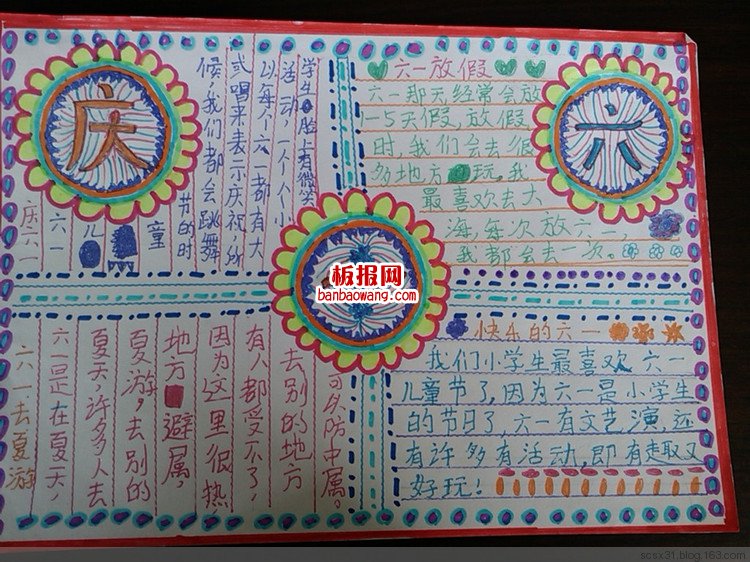 庆
庆六一
六一儿童
节的时
候,我们都会跳舞
或唱来表示庆祝,所
以每个六一都有大
活动,一个个小
学生脸上有微笑
六一放假
六一那天经常会放
1-5天假,放假
时,我们会去很
多地方玩。我
最喜欢去大
海,每次放六一,
我都会去一次。
六
板报网
banbaowang.com
六一去夏游
六一是在夏天,
夏天,许多人去
夏游,去别的
地方避属,
因为这里很热
有人都受不了,
去别的地方
可以防中属。
快乐的六一
我们小学生最喜欢六一
儿童节了,因为六一是小学生
的节日了,六一有文艺演,还
有许多有活动,即有趣又
好玩!
scsx31.blog.163.com